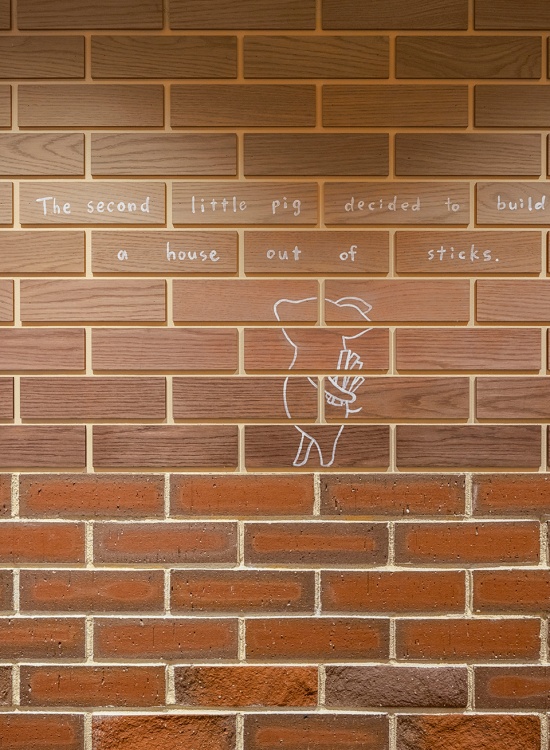 The second little pig decided to build
a house out of sticks.